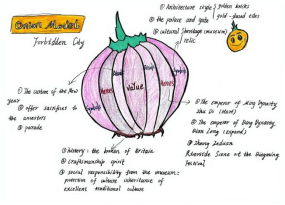 Onion Model
Forbidden City
① Architecture style { golden bricks
gold-glazed tiles
② the palace and gate
③ cultural (heritage (museum)
relic
Ritual
Ritual
Symbols
Symbols
Heroes
Heroes
Value
① The custom of the New
year
② offer sacrifices to
the ancestors
③ parade
① The emperor of Ming Dynasty
Zhu Di (start)
② The emperor of Qing Dynasty
Qian Long (expand)
③ Zhang Zeduan
Riverside Scene at the Qingming
Festival
① history: the broken of Britain
② craftsmanship spirit
③ social responsibility from the museum:
protection of culture inheritance of
excellent traditional culture